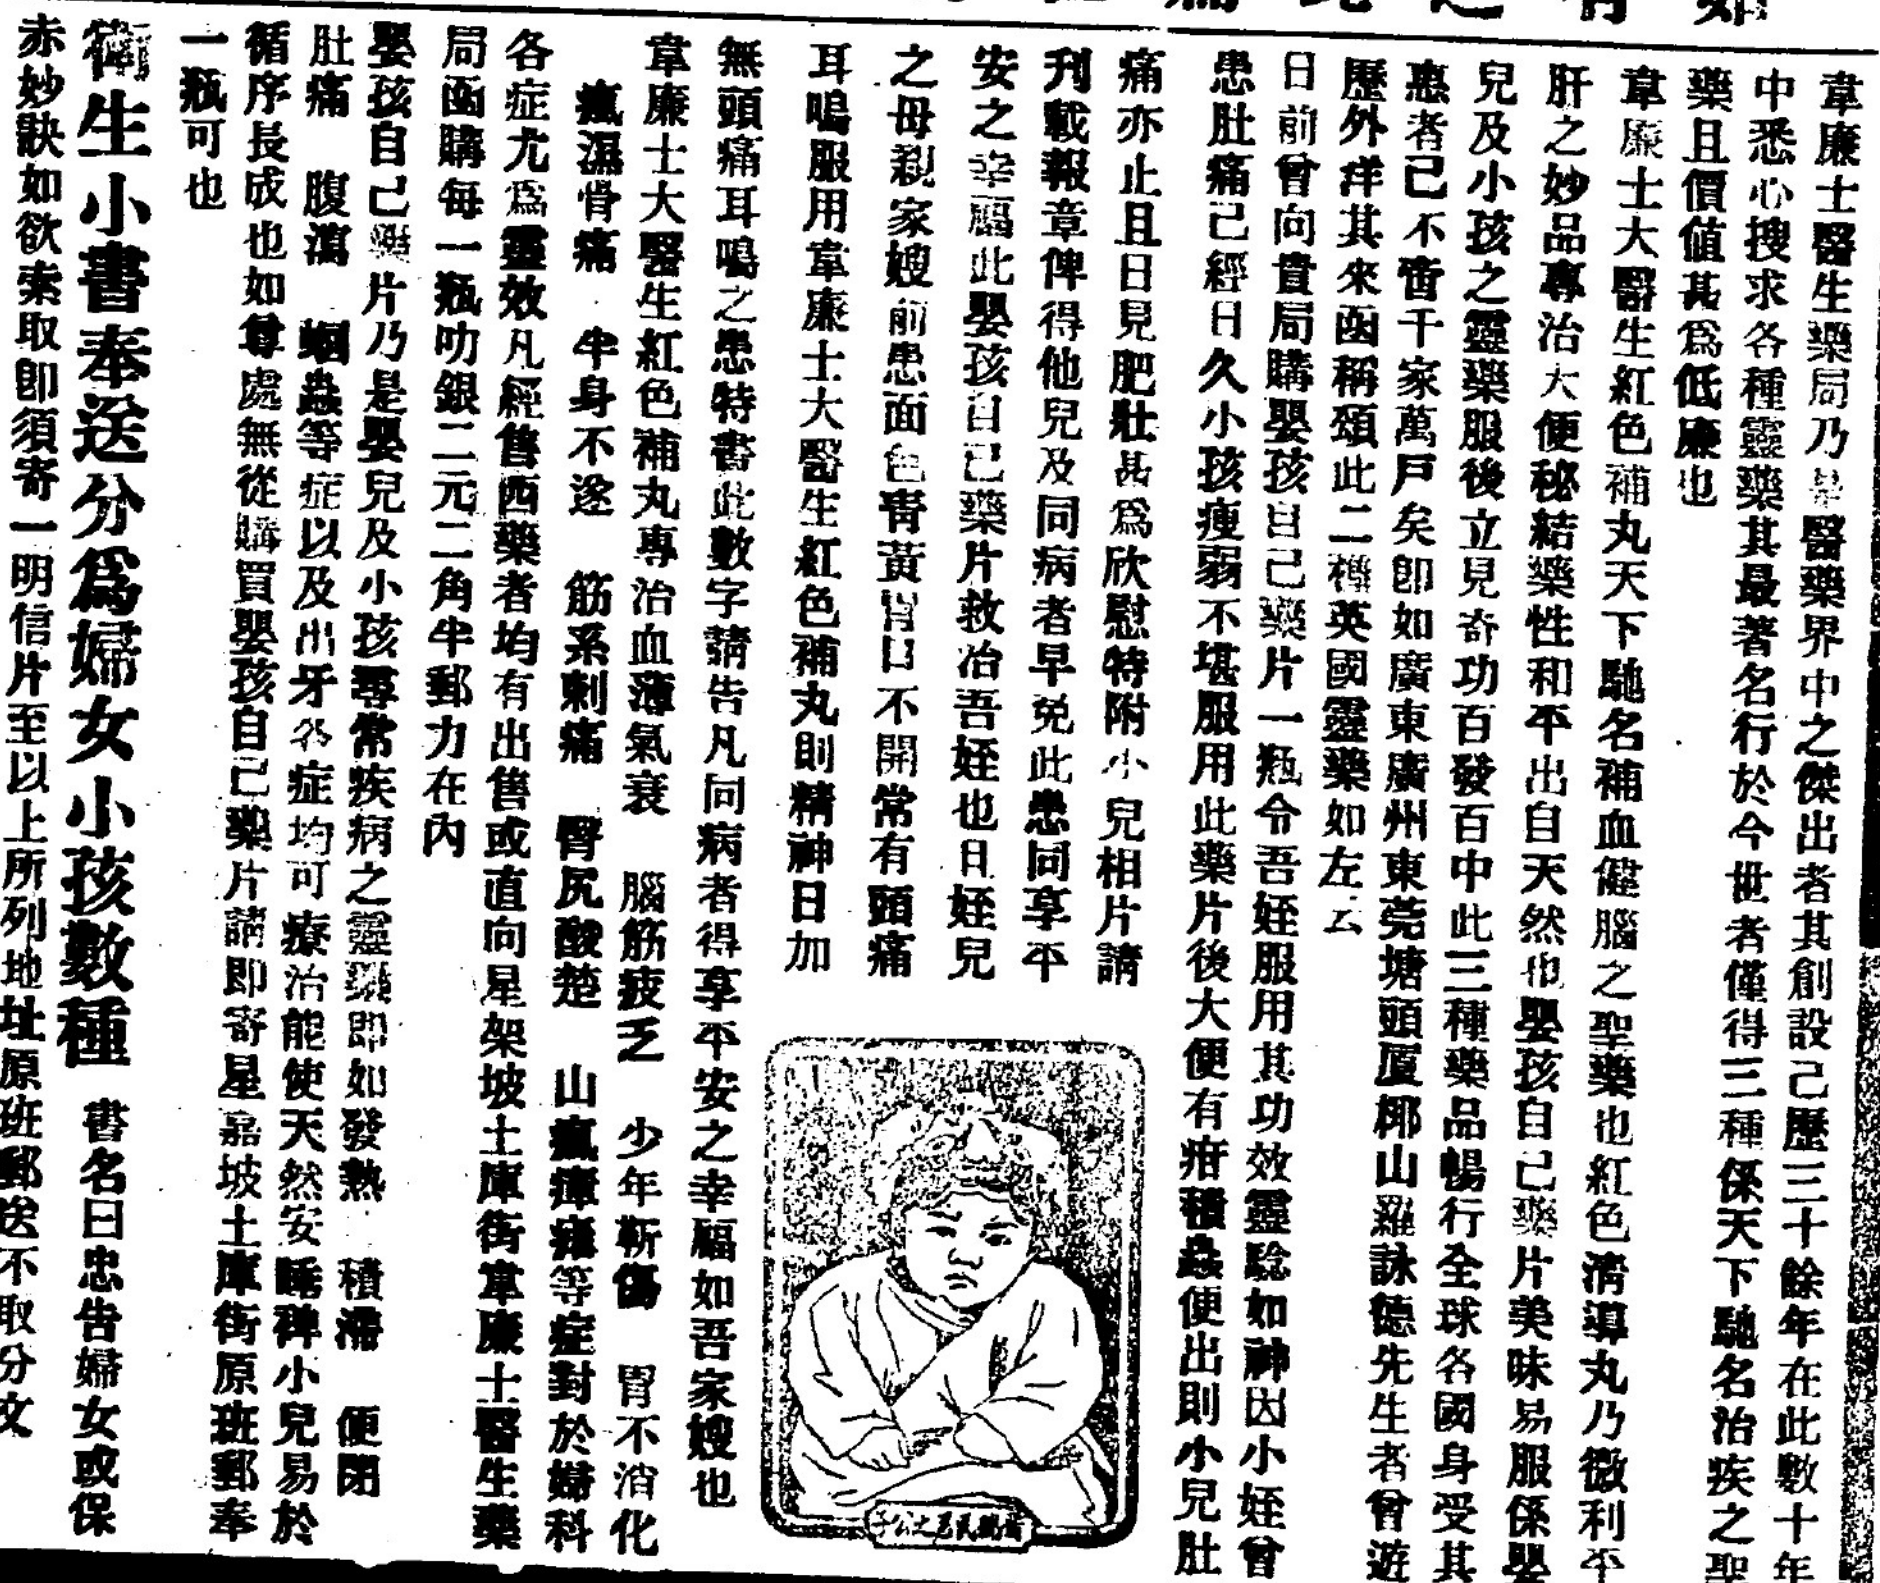 韋廉士醫生藥局乃是醫藥界中之傑出者其創設己歷三十餘年在此數十年
中悉心搜求各種靈藥其最著名行於今世者僅得三種係天下馳名治疾之聖
藥且價値甚爲低廉也
韋廉士大醫生紅色補丸天下馳名補血健腦之聖藥也紅色淸導丸乃微利平
肝之妙品專治大便秘結藥性和平出自天然也嬰孩自己藥片美味易服係嬰
兒及小孩之靈藥服後立見奇功百發百中此三種藥品暢行全球各國身受其
惠者己不啻千家萬戶矣卽如廣東廣州東莞塘頭厦椰山羅詠德先生者曾遊
歷外洋其來函稱頌此二種英國靈藥如左云
日前曾向貴局購嬰孩自己藥片一瓶令吾姪服用其功效靈驗如神因小姪曾
患肚痛己經日久小孩瘦弱不堪服用此藥片後大便有疳積蟲便出則小兒肚
痛亦止且日見肥壯甚爲欣慰特附小兒相片請
刋載報章俾得他兒及同病者早免此患同享平
安之幸福此嬰孩自己藥片救治吾姪也日姪兒
之母親家嫂前患面色靑黃胃口不開常有頭痛
耳鳴服用韋廉士大醫生紅色補丸則精神日加
無頭痛耳鳴之患特書此數字請告凡同病者得享平安之幸福如吾家嫂也
韋廉士大醫生紅色補丸專治血薄氣衰 腦筋疲乏 少年斲傷 胃不消化
瘋濕骨痛 半身不遂 筋系刺痛 臀尻酸楚 山嵐瘴瘧等症對於婦科
各症尤爲靈效凡經售西藥者均有出售或直向星架坡土庫街韋廉士醫生藥
局函購每一瓶叻銀二元二角半郵力在內
嬰孩自己藥片乃是嬰兒及小孩尋常疾病之靈藥即如發熱 積滯 便閉
肚痛 腹瀉 蛔蟲等症以及出牙各症均可療治能使天然安睡稗小兒易於
循序長成也如尊處無從購買嬰孩自己藥片請即寄星嘉坡土庫街原班郵奉
一瓶可也
衛生小書奉送分爲婦女小孩數種 書名曰忠告婦女或保
赤妙訣如欲索取卽須寄一明信片至以上所列地址原班郵送不取分文